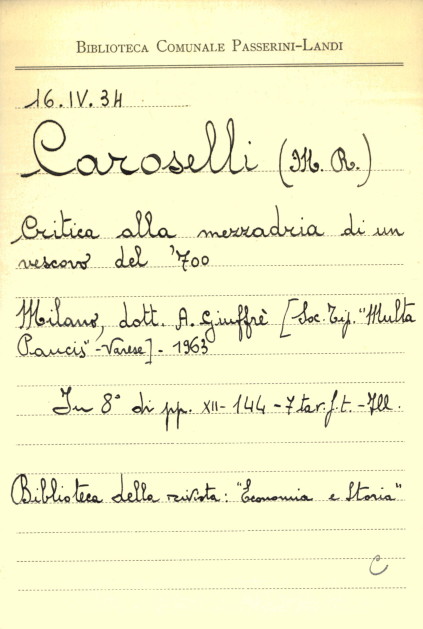 BIBLIOTECA COMUNALE PASSERINI-LANDI
16.IV.34
Caroselli (M. R.)
Critica alla mezzadria di un
vescovo del '700
Milano, dott. A. Giuffrè [Soc. Tip. "Multa
Paucis" - Varese] - 1963
In 8° di pp. XII - 144 - 7 tav. f. t. - Ill.
Biblioteca della rivista: "Economia e Storia"
C